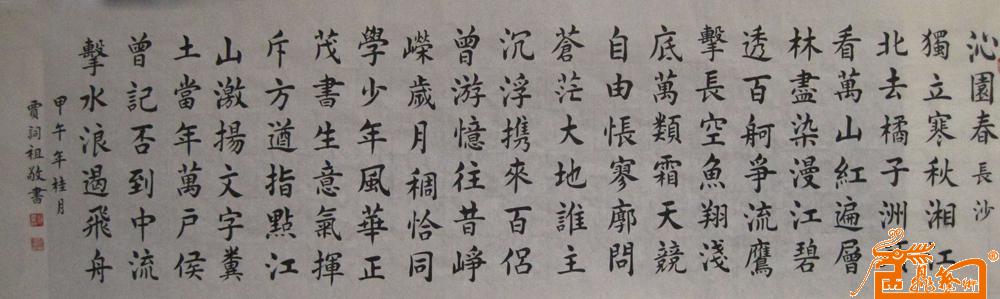 沁園春 長沙
獨立寒秋湘江
北去橘子洲
看萬山紅遍層
林盡染漫江碧
透百舸爭流鷹
擊長空魚翔淺
底萬類霜天競
自由悵寥廓問
蒼茫大地誰主
沉浮携來百侶
曾游憶往昔崢
嶸歲月稠恰同
學少年風華正
茂書生意氣揮
斥方遒指點江
山激揚文字糞
土當年萬戶侯
曾記否到中流
擊水浪遏飛舟
甲午年桂月
賈詞祖敬書